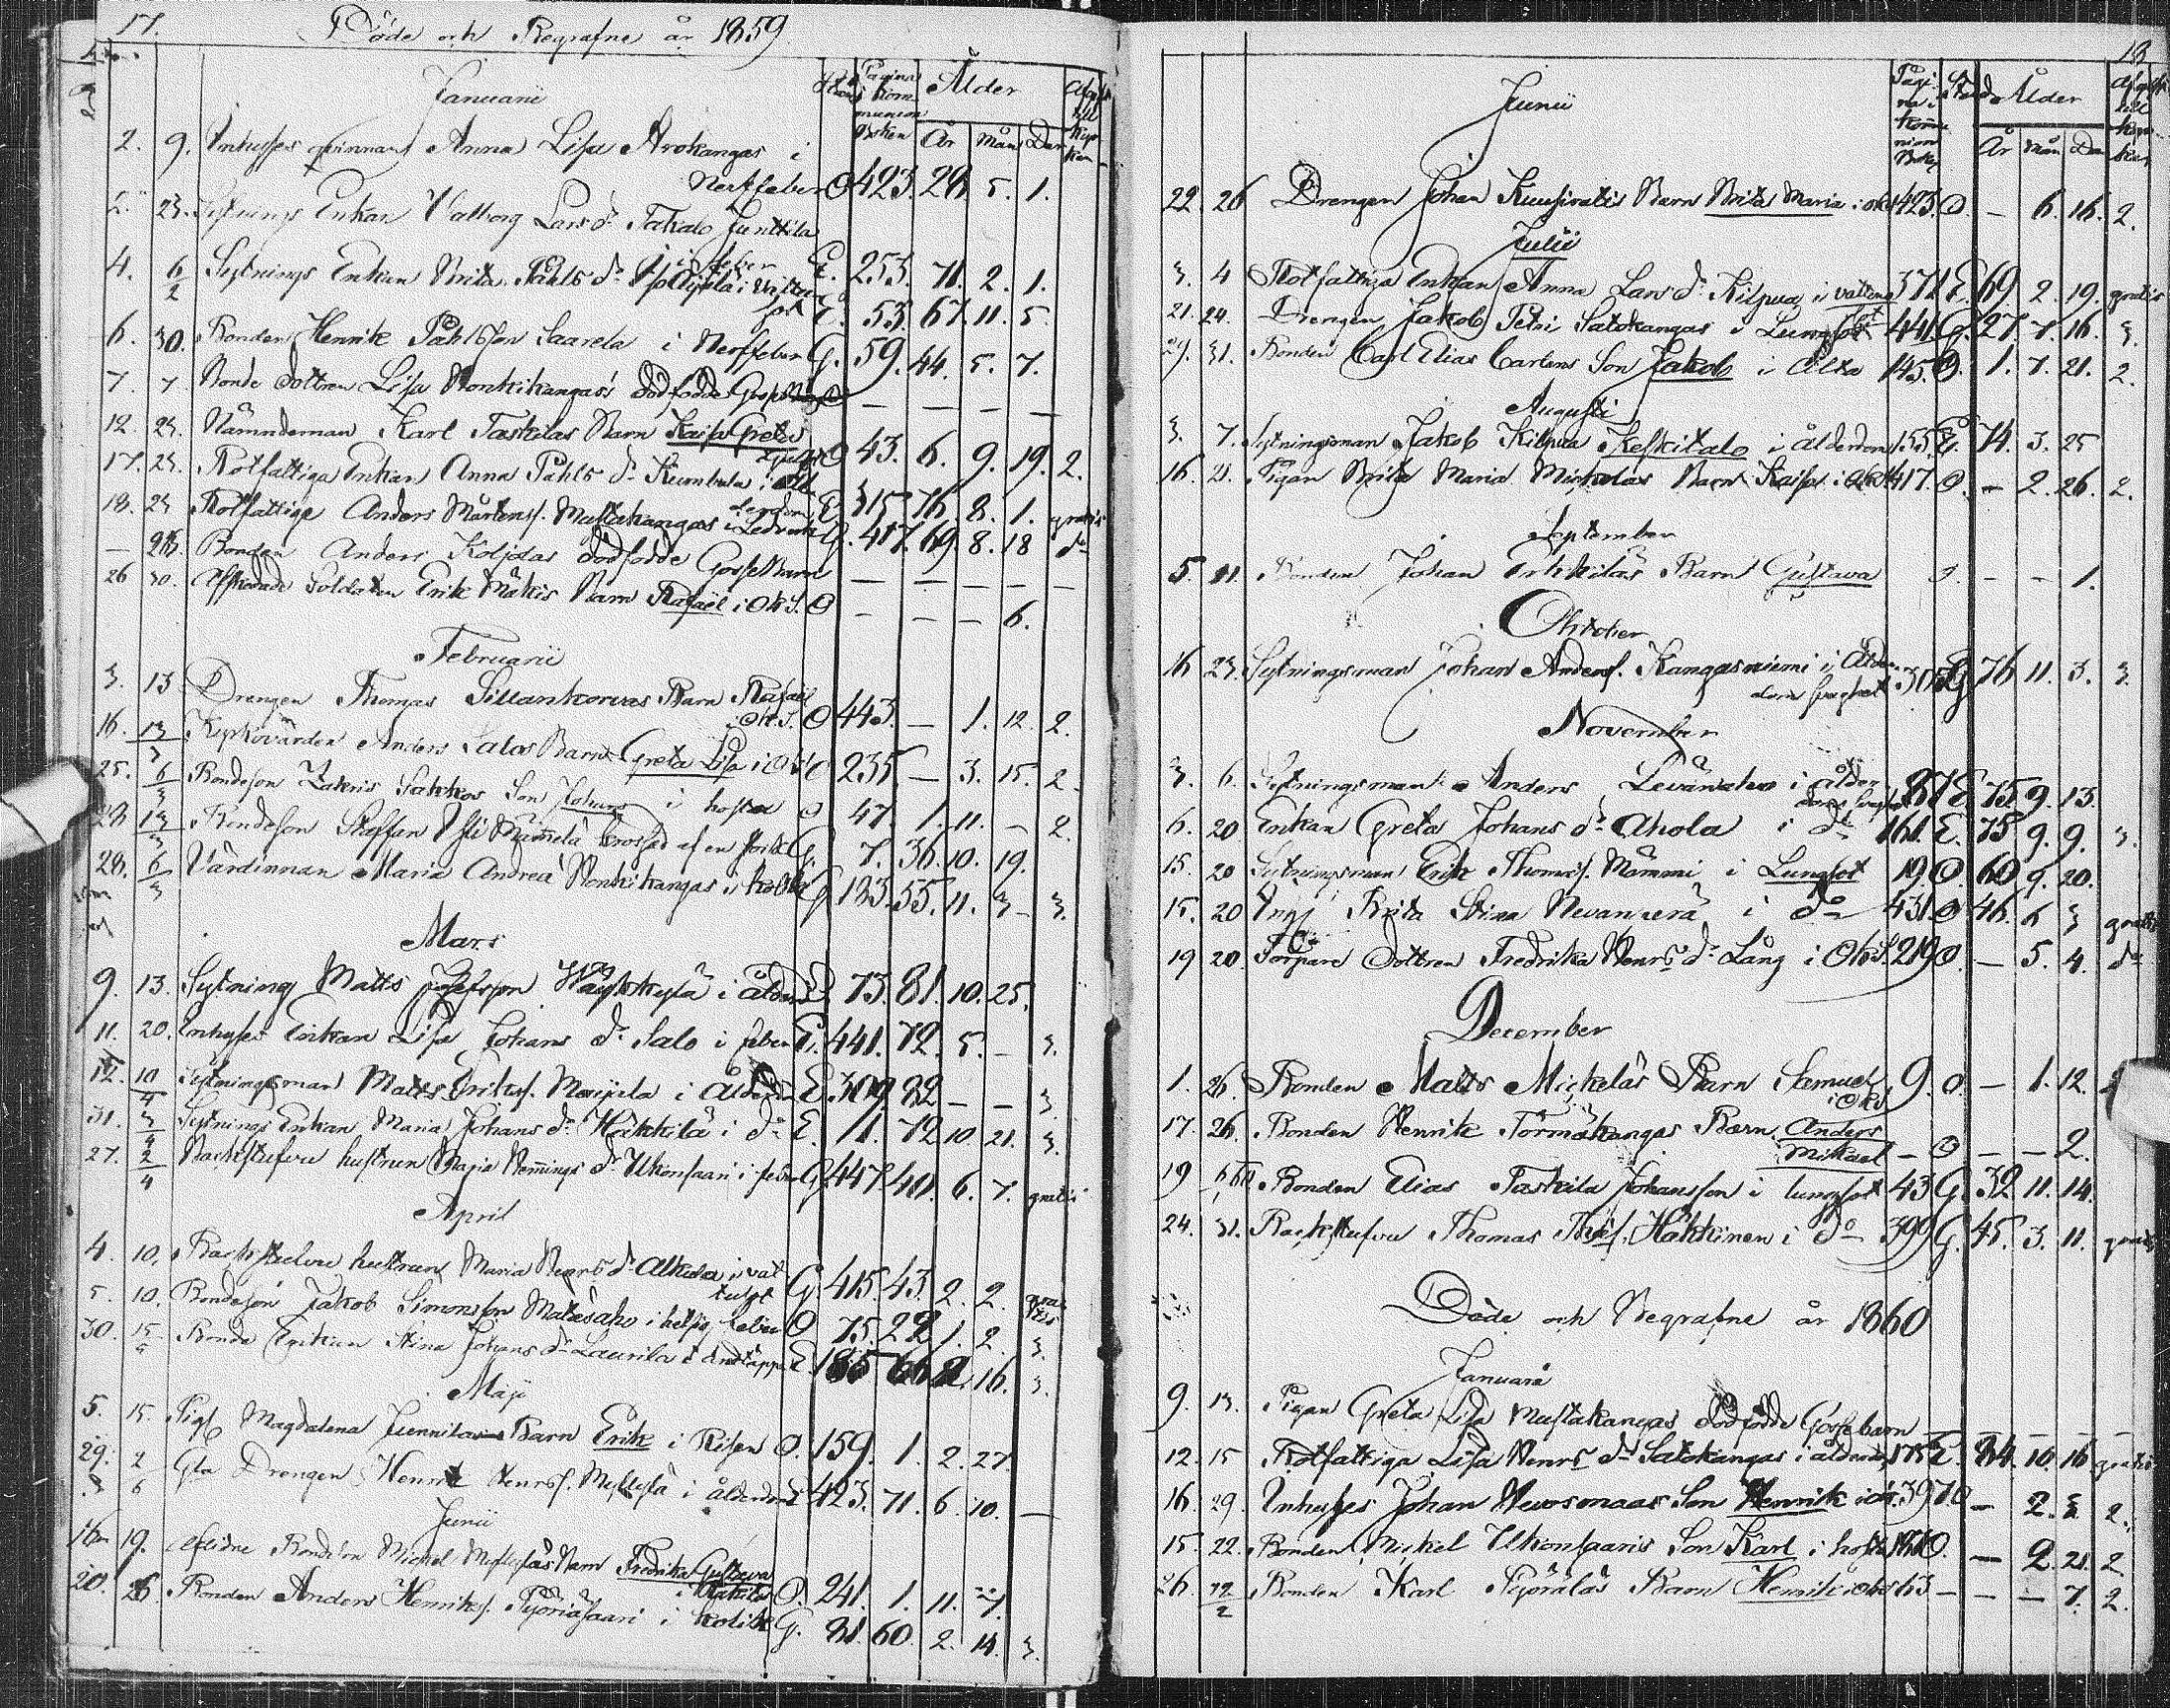 17.
Döde och Begrafne år 1859
Januarii
Stånd Pagina i kommunion boken Ålder
År Mån Dar
2. 9. Inhyses qvinnan Anna Lisa Arokangas i
Nerffeber O 423. 28. 5. 1.
2. 23. Sytnings Enkan Valborg Lars dr Takalo Junttila
i feber E. 253. 71. 2. 1.
4. 6/2 Sytnings Enkan Brita Påhls dr
E. 53. 67. 11. 5.
6. 30. Bonden Henrik Påhlsson Saarela i Nerffeber G. 59. 44. 5. 7.
7. 7 Bonde dottren Lisa Honkikangas's dödfödde — — — —
12. 23. Nämndeman Karl Taskilas Barn Kaisa Greta
O 43. 6. 9. 19. 2.
17. 23. Rotfattiga Enkan Anna Påhls dr Kumbula i ål-
derdom E 315 76. 8. 1. gratis
18. 23 Rotfattige Anders Mårtenss. Mustakangas i Ledverk G. 417. 69. 8. 18 do
— 23. Bonden Anders Koljolas dödfödde Gossebarn — — — — —
26 30. Afskedade Soldaten Erik Mäkis Barn Rafaël i Ok S. O — — — 6.
Februarii
3. 13 Drengen Thomas Sillankorvas Barn Rafael
i Ok. S. O 443. — 1. 12. 2.
16. 13/3 Kyrkovärden Anders Salos Barn Greta Lisa i Ok S O 235 — 3. 15. 2
25. 6/3 Bondeson Zakris Sakkos Son Johan i hosta O 47. 1. 11. — 2.
28 13/3 Bondeson Staffan Yli Mämmelä krossad af en stock G. 7. 36. 10. 19.
28. 6/3 Värdinnan Maria Andreæ Honkikangas i kolik G 123. 55. 11. 3 — 3.
Mars
9. 13. Sytning Matts Josefsson Häyhkylä i ålderd E. 73. 81. 10. 25.
11. 20. Inhyses Enkan Lisa Johans dr Salo i feber E. 441. 72. 5. — 3.
12. 10/4 Sytningsman Matts Erikss. Marjula i ålderd E. 309. 82 — — 3.
31. 3/4 Sytnings Enkan Maria Johans dr Häkkilä i do E. 11. 72 10. 21. 3.
27. 2/4 Backstufvu hustrun Maria Hemmings dr Ulkonsaari i feber G 447. 40. 6. 7. gratis
April
4. 10. Backstufvu hustrun Maria Henrs dr Alkula i vat
tusot G 415. 43. 2. 2. gratis
5. 10. Bondeson Jakob Simonsson Matesaho i hetsig feber O 75. 22 1. 2. 3.
30. 15/5 Bonde Enkan Stina Johans dr Laurila i andtäppa E. 185 66 2. 16. 3.
Maji
5. 15. Pig. Magdalena Junnilas Barn Erik i Risen O. 159. 1. 2. 27.
29. 2/6 Gla Drengen Henrik Henrss. Myllylä i ålderdom 423. 71. 6. 10. —
Junii
16 19. Aflidne Bondeson Mickel Myllyläs Barn Fredrika Gustava
O. 241. 1. 11. 27.
20. 26. Bonden Anders Henrikss. Pyöriäsaari i kolik G. 81. 60. 2. 14. 3.
18
Junii
Pagina i kommunion Boken Stånd Ålder
År Mån Dar
22. 26 Drengen Johan Kuusiratis Barn Brita Maria i oks 423. O. — 6. 16. 2.
Julii
3. 4 Rotfattiga Enkan Anna Lars dr Kilpua i vattensot 371 E. 69 2. 19. gratis
21. 24. Drengen Jakob Petri Satokangas i Lungsot 441 G. 27. 7. 16. 3.
29. 31. Bonden Carl Elias Carlens Son Jakob i Älta 145. O. 1. 7. 21. 2.
Augusti
3. 7. Sytningsman Jakob Kilpua Keskitalo i ålderdom 155. G. 74. 3. 25
16. 21. Pigan Brita Maria Mickolas Barn Kaisa i Oks 417. O. — 2. 26. 2.
September
5. 11. Bonden Johan Erkkiläs Barn Gustava O. — — 1.
Oktober
16 23. Sytningsman Johan Anderss. Kangasniemi i Ålder-
doms svaghet 305 G 76 11. 3. 3.
November
3. 6. Sytningsman Anders Levänaho i ålder
doms svaghet 87 E. 75. 9. 13.
6. 20 Enkan Greta Johans dr Ahola i do 161. E. 75 9. 9. 3.
15. 20 Sytningsman Erik Thomass. Mämmi i Lungsot 19. O. 60 9. 20.
15. 20 Inh Brita Stina Nevanperä i do 431. O 46. 6 3 gratis
19 20. Torpare dottren Fredrika Henrs dr Lång i Ok S. 219 O. — 5. 4. do
December
1. 26. Bonden Matts Mickeläs Barn Samuel
i Ok S 9. O. — 1. 12.
17. 26. Bonden Henrik Törmäkangas Barn Anders
Mikael — O — — 2.
19 6/1 60 Bonden Elias Taskila Johansson i lungsot 43 G. 32 11. 14.
24. 31. Backstufvu Thomas Häkkinen i do 399 G. 45. 3. 11. gratis
Döde och Begrafne år 1860
Januarii
9. 13. Pigan Greta Lisa Mustakangas dödfödde Gossebarn — — — — —
12. 15 Rotfattiga Lisa Henrs dr Satokangas i ålderdom E. 84. 10. 16 gratis
16. 29. Inhyses Johan Nevosmaas Son Henrik i ok. 397 O — 2. 3. 2.
15. 22. Bonden Mickel Ulkonsaaris Son Karl i hosta O. — 2. 21. 2
26. 12/2 Bonden Karl Pyöräläs Barn Henrik i oks 63 — — — 7. 2.